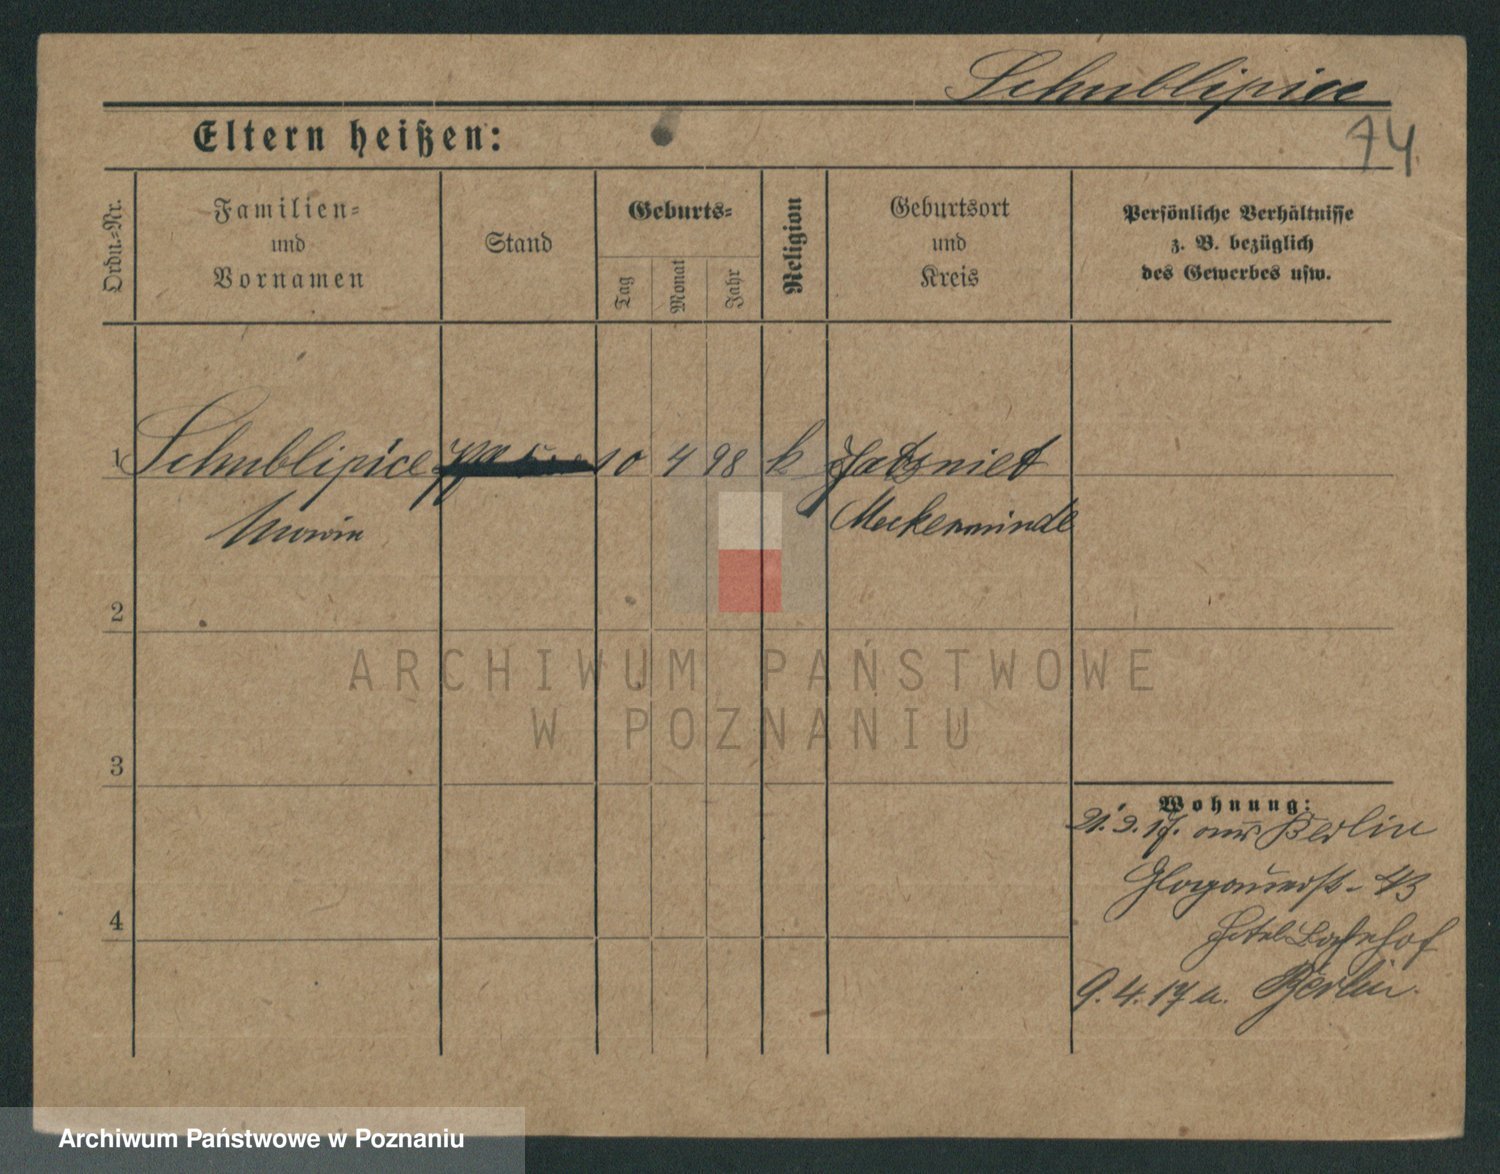 Schublipice
74
Eltern heißen:
Ordn.-Nr.
Familien-
und
Vornamen
Stand
Geburts-
Tag
Monat
Jahr
Religion
Geburtsort
und
Kreis
Persönliche Verhältnisse
z. B. bezüglich
des Gewerbes usw.
1 Schublipice 10 4 98 k
2
3
4
Wohnung:
21. 3. 17. aus Berlin
Glogauerstr. 43
Hotel Bahnhof
9. 4. 17 a. Berlin.
ARCHIWUM PAŃSTWOWE
W POZNANIU
Archiwum Państwowe w Poznaniu